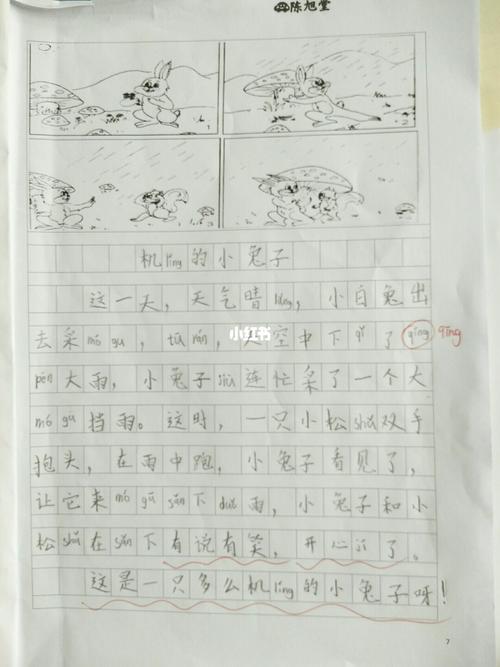 陈旭堂
1
2
机líng的小兔子
这一天，天气晴lǎng，小白兔出
去采mó gu，tū rán，天空中下qǐ了qīng qīng
pén大雨，小兔子jiù连忙采了一个大
mó gū挡雨。这时，一只小松shǔ双手
抱头，在雨中跑，小兔子看见了，
让它来mó gū sǎn下duǒ雨，小兔子和小
松shǔ在sǎn下有说有笑，开心jí了。
这是一只多么机líng的小兔子呀！
小红书
7